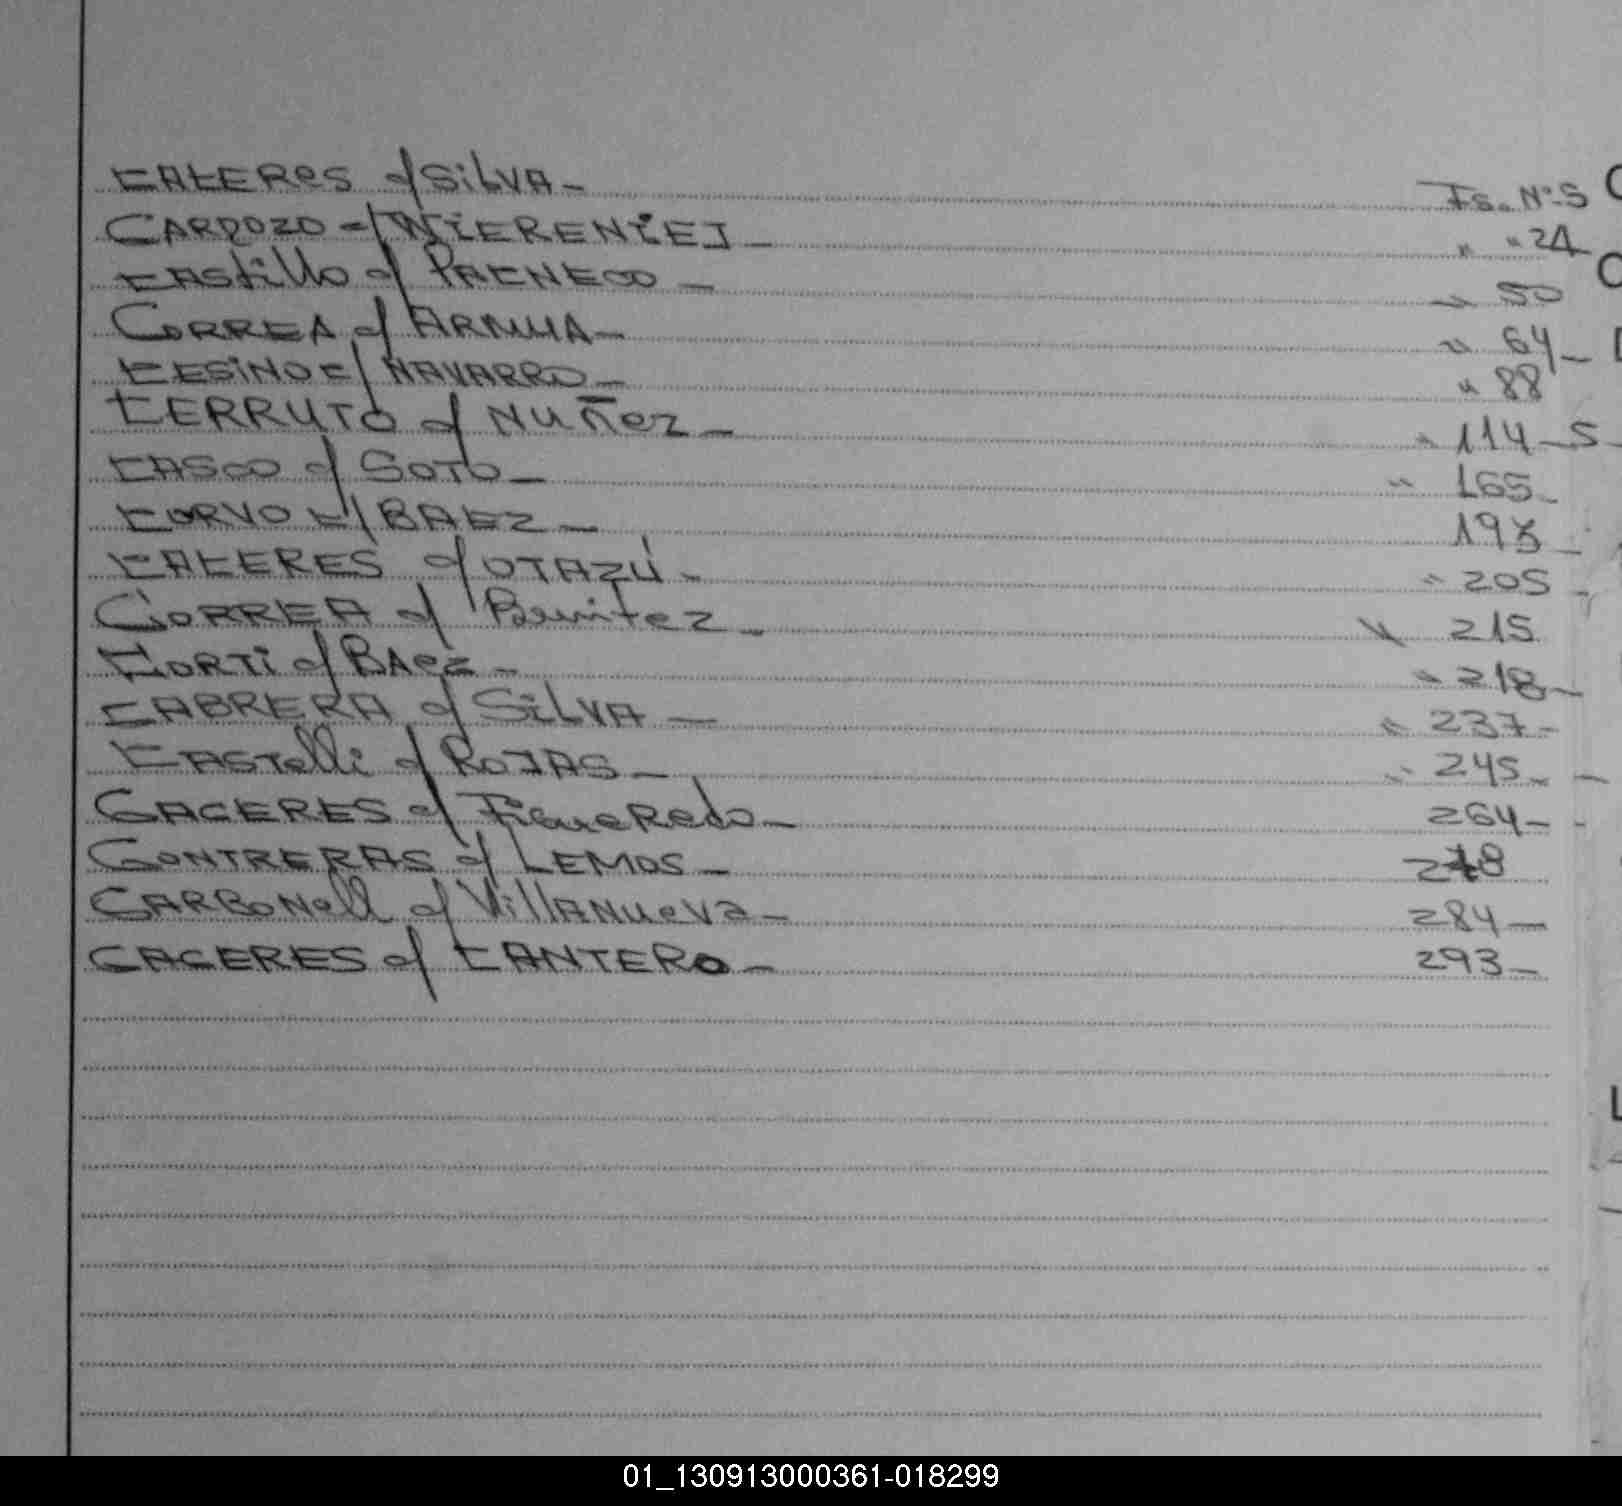 CACEREs c/ SiLVA - Fs. Nº 5
CARDOZO c/ WiERENiEJ - " " 24
CAStillo c/ PACHECO - " 50
CORREA c/ ARMUA - " 64 -
CESiNO c/ NAVARRO - " 88
CERRUTO c/ NUÑez - " 114 - S
CASCO c/ SOTO - " 165 -
CORVO c/ BAEZ - 193 -
CACERES c/ OTAZÚ - " 205 -
CORREA c/ Benitez - " 215
CORTi c/ BAez - " 218 -
CABRERA c/ SiLVA - " 237 -
CASTelli c/ ROJAS - " 245 -
CACERES c/ FigueRedo - 264 -
CONTRERAS c/ LEMOS - 278
CARBONell c/ VillANueva - 284 -
CACERES c/ CANTERO - 293 -
01_130913000361-018299